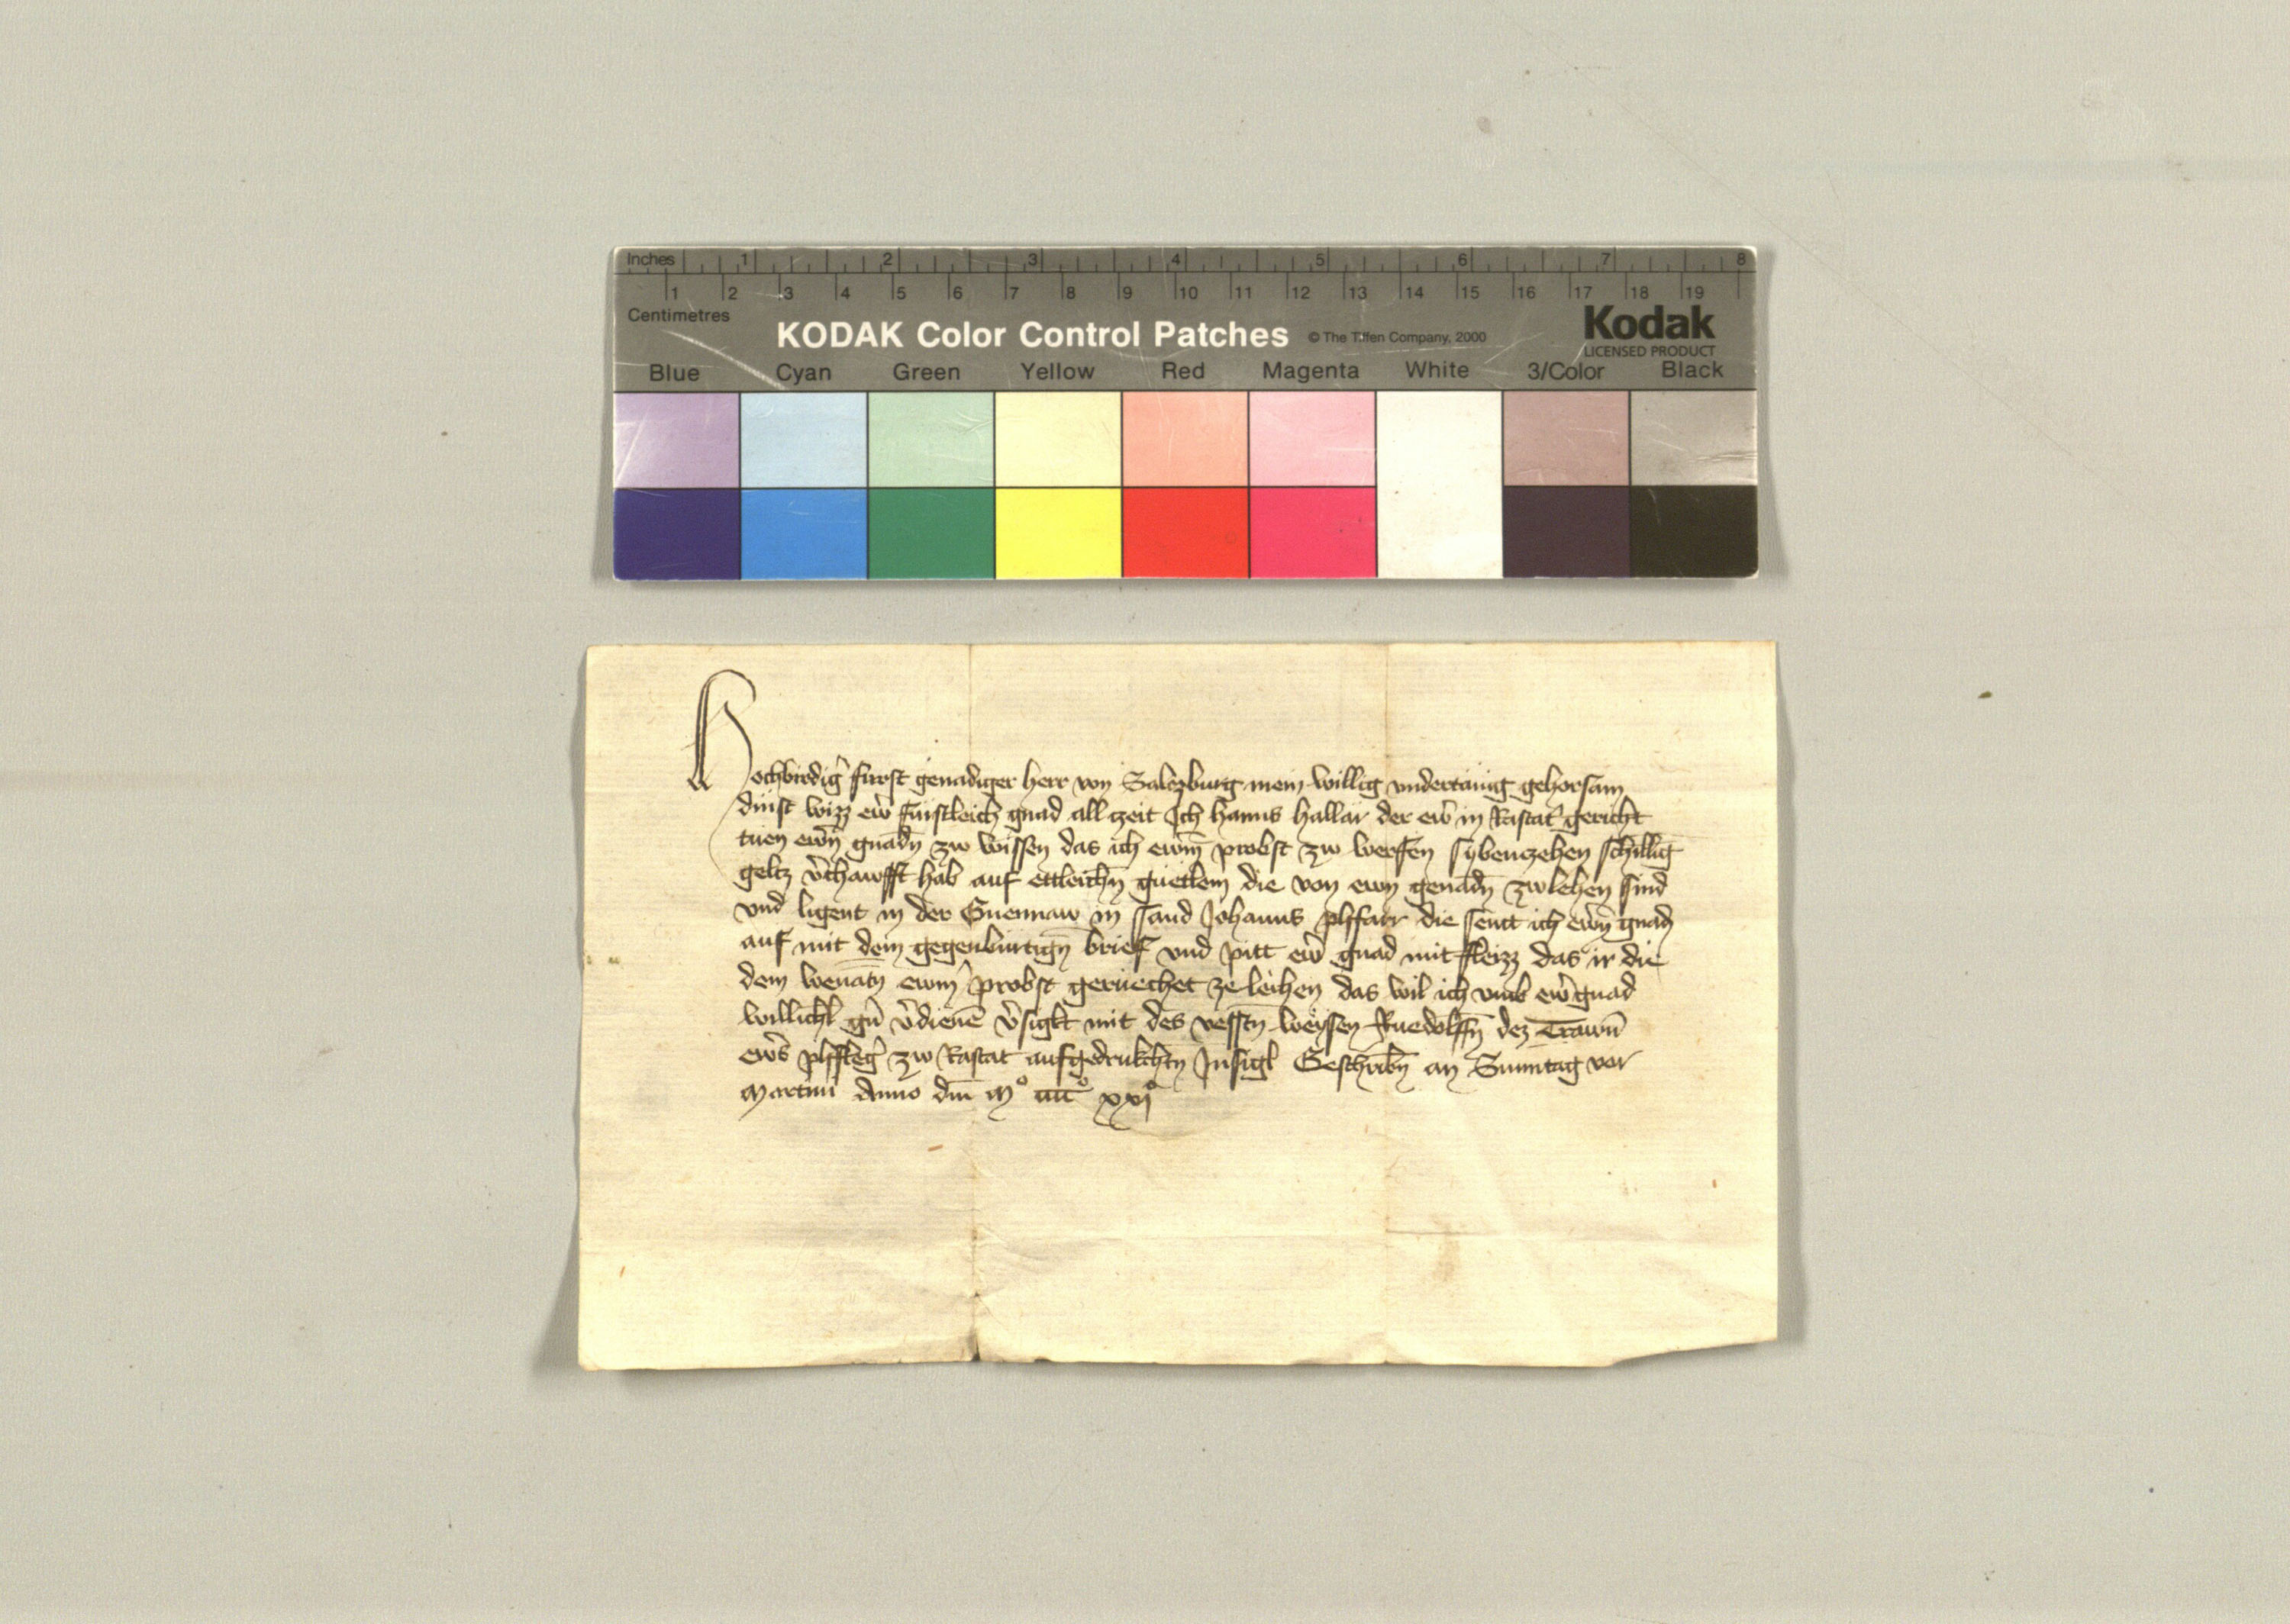 Inches 1 2 3 4 5 6 7 8
1 2 3 4 5 6 7 8 9 10 11 12 13 14 15 16 17 18 19
Centimetres
KODAK Color Control Patches © The Tiffen Company, 2000 Kodak
LICENSED PRODUCT
Blue Cyan Green Yellow Red Magenta White 3/Color Black
Hochwirdig' fürst genadiger herr von Salczburg mein willig vndertänig gehorsam
dinst wizz ew' fürstleich gnad all czeit Ich Hanns Hallar der ew' in Rastat' gericht
tuen ewrn̄ gnadn̄ zw wissen das ich ewrm̄ probst zw werffen sybenczehen schilliḡ
geltz v'chawfft hab auf ettleichn̄ guetlein die von ewrn genādn̄ zw lehen sind
vnd ligent in der Guennaw in sand Johanns phfarr die sentt ich ewrn̄ gnadn̄
auf mit dem gegenburtign̄ brief vnd pitt ew' gnad mit fleizz das ir die
dem benātn̄ ewrm̄ probst geruechet ze leihen das wil ich vmb ew' gnad
willichl' gn̄ v'dienē v'siglt mit des vesstn̄ weysen Ruedolffn̄ dez Trawn̄
ew's phfleg' zw Rastat aufgedrukchtn̄ Insigl Geschribn̄ an Sunntag vor
Martini Anno dm̄ mº iiiiº xxiº